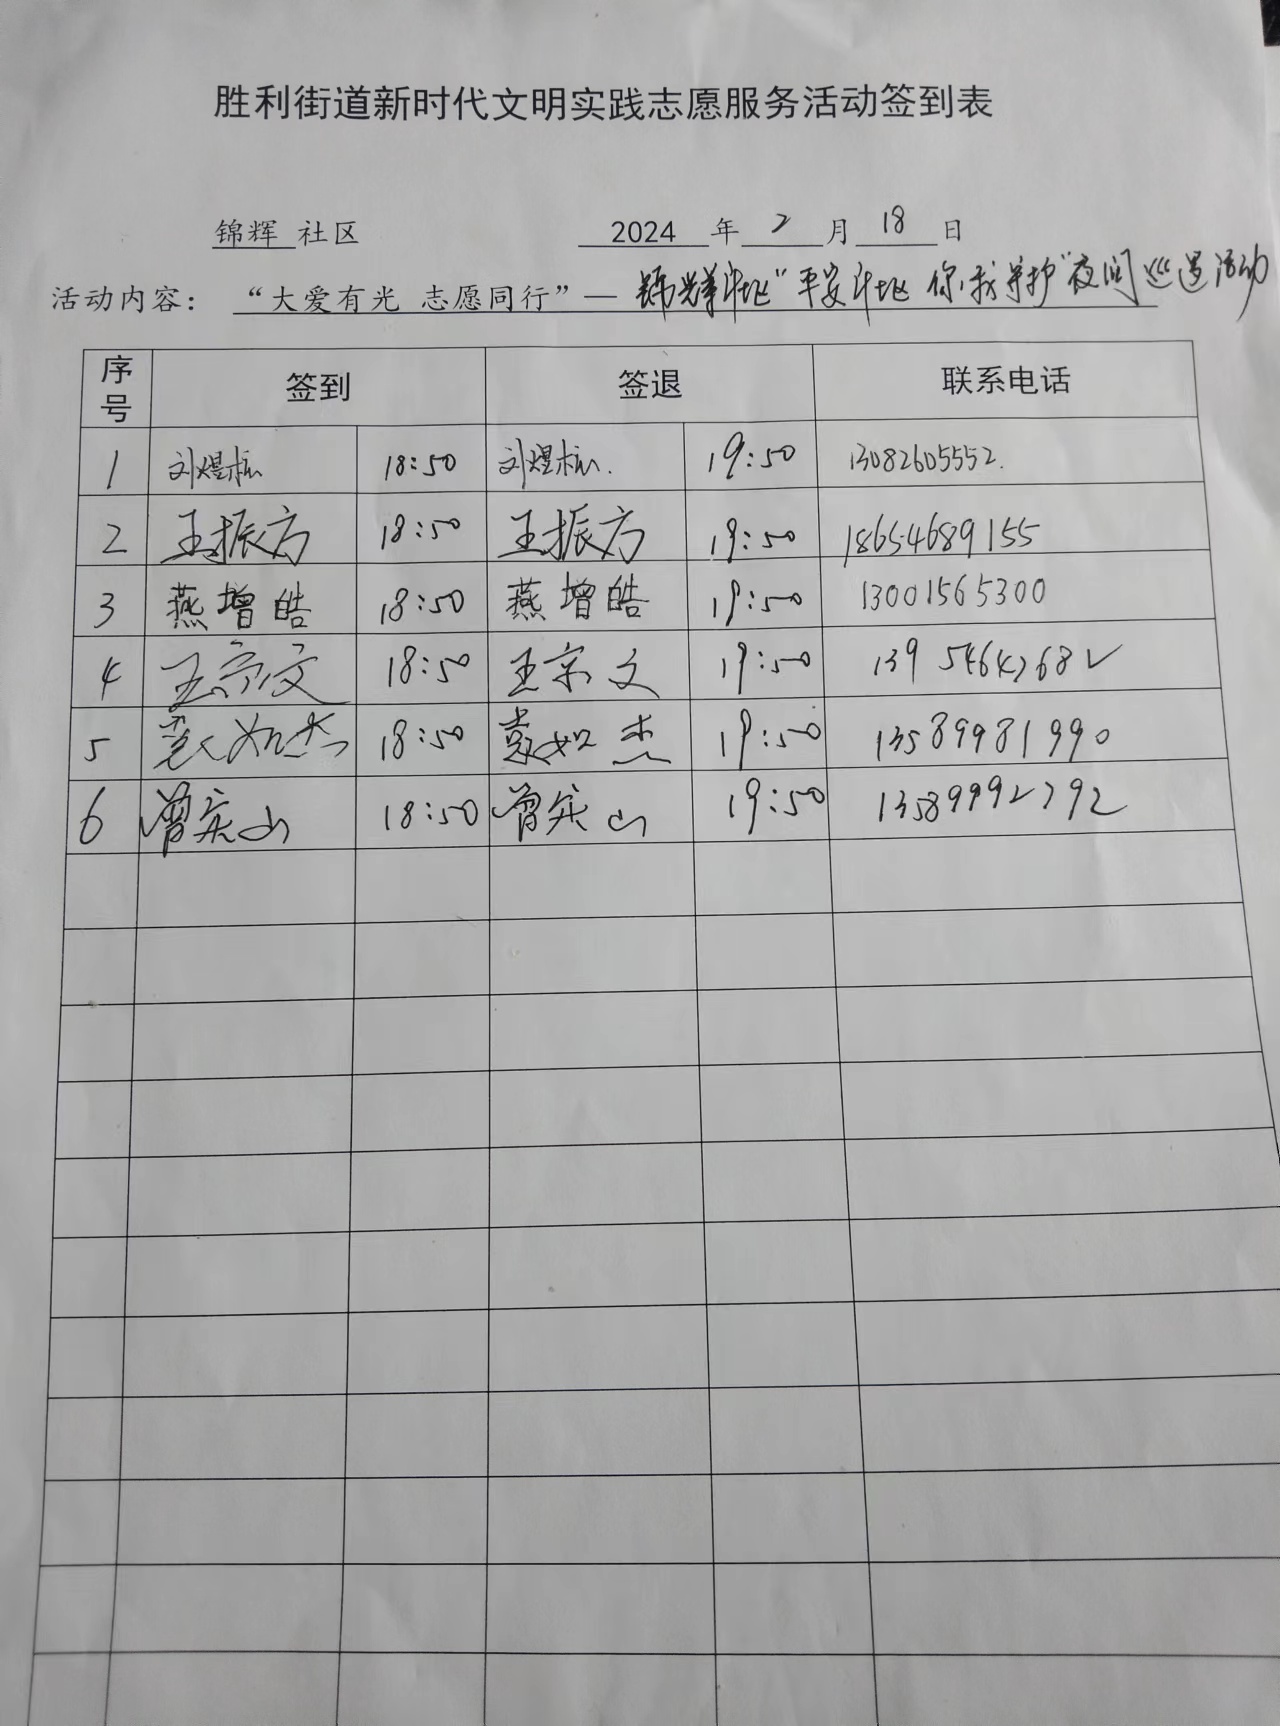 胜利街道新时代文明实践志愿服务活动签到表
锦辉 社区 2024 年 2 月 18 日
活动内容： “大爱有光 志愿同行”— 锦辉社区“平安社区 你我守护”夜间巡逻活动
序号 签到 签退 联系电话
1 刘煜 18:50 刘煜 19:50 13082605552
2 王振方 18:50 王振方 19:50 18654689155
3 燕增皓 18:50 燕增皓 19:50 13001565300
4 王京文 18:50 王京文 19:50
5 袁如杰 18:50 袁如杰 19:50 13589981990
6 曾宪山 18:50 曾宪山 19:50 13589992792